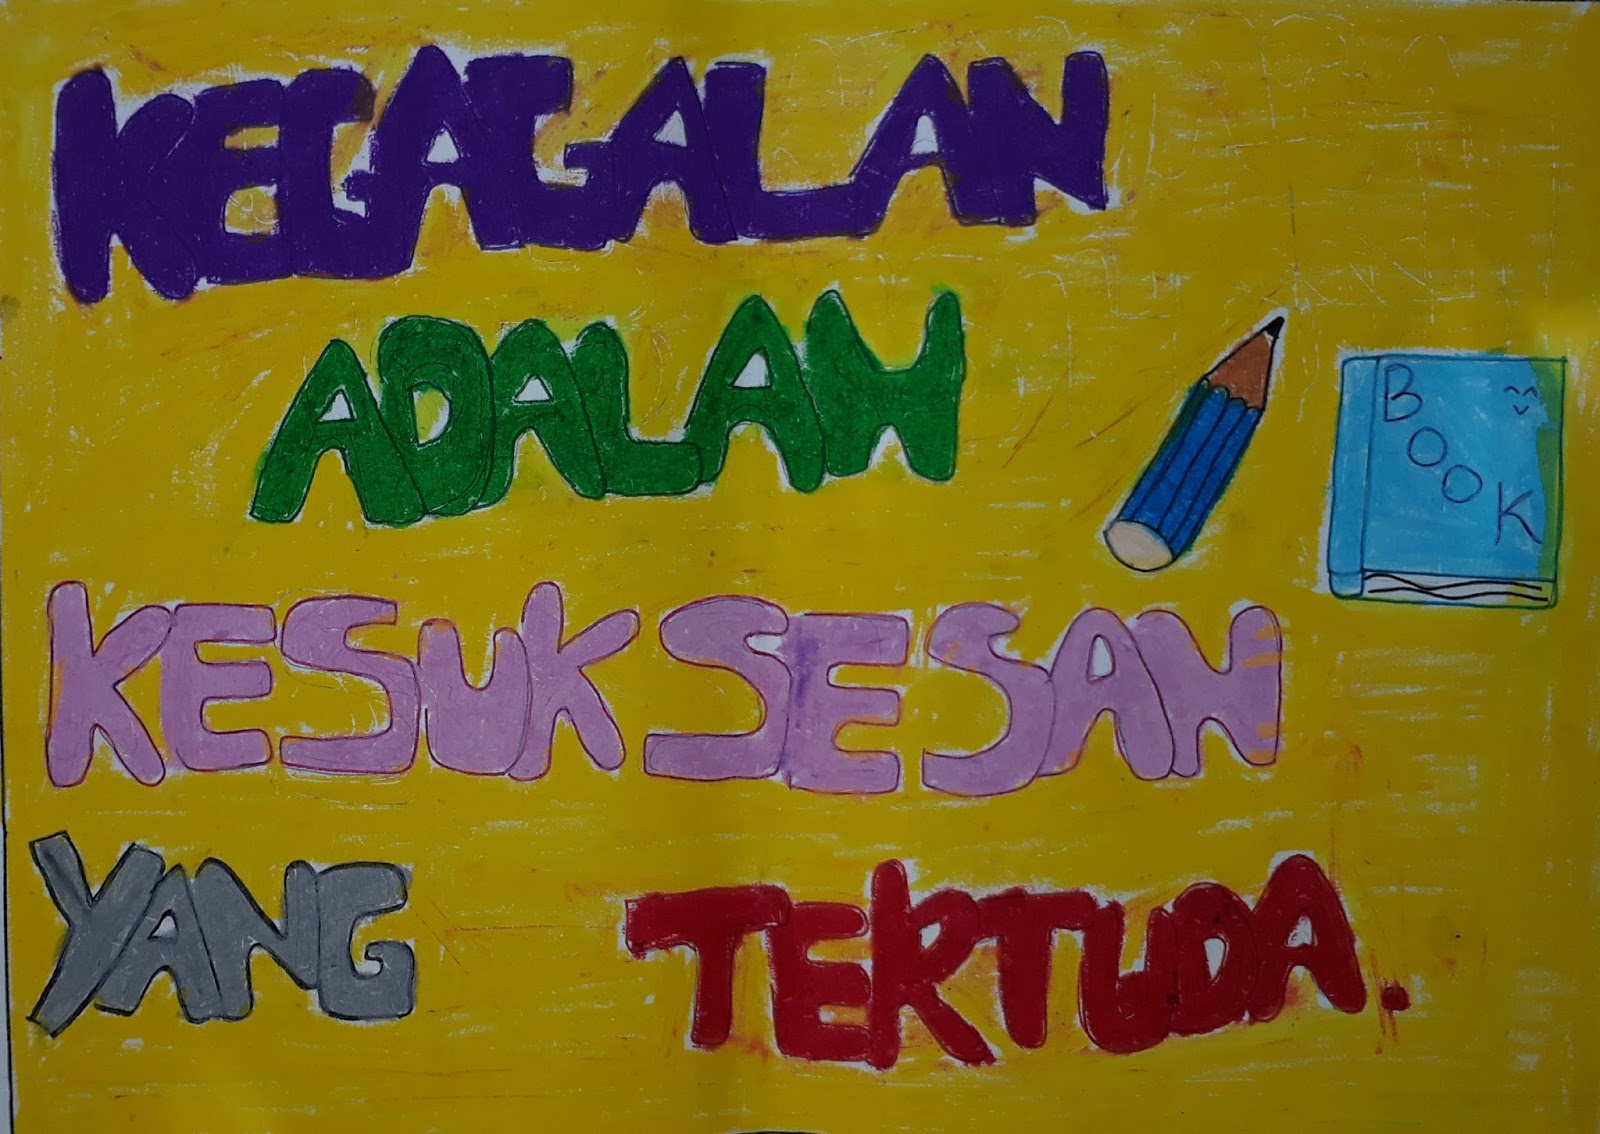 KEGAGALAN
ADALAH
BOOK
KESUKSESAN
YANG TERTUDA.